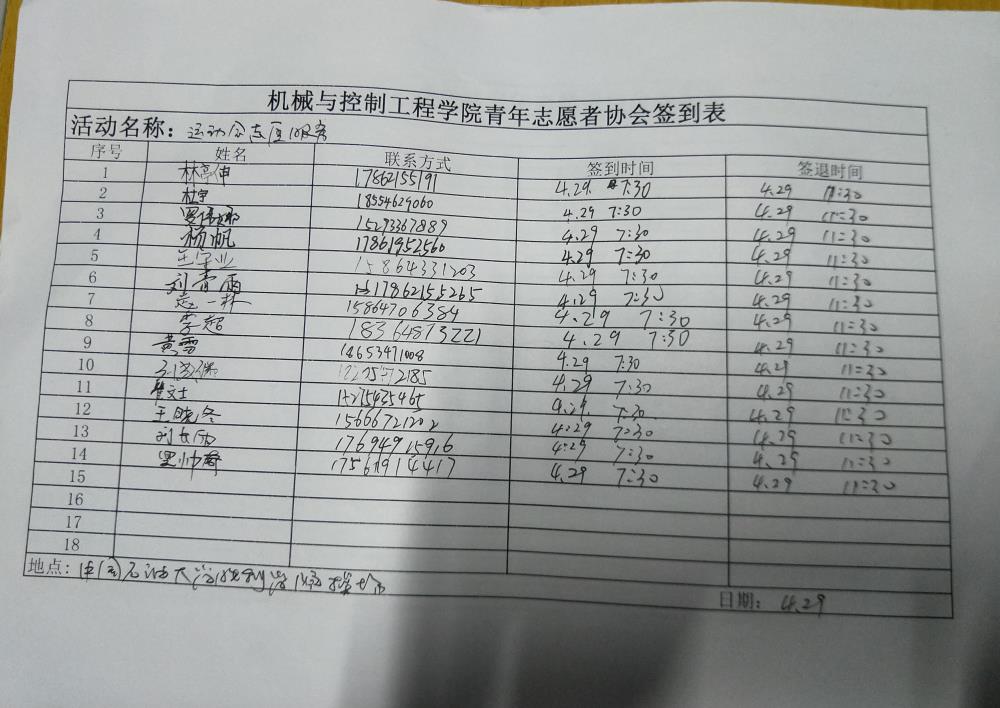 机械与控制工程学院青年志愿者协会签到表
活动名称：运动会志愿服务
序号 姓名 联系方式 签到时间 签退时间
1 林亭伸 17862155191 4.29 7:30 4.29 11:30
2 杜宇 18554629060 4.29 7:30 4.29 11:30
3 15293367889 4.29 7:30 4.29 11:30
4 杨帆 17861952560 4.29 7:30 4.29 11:30
5 15864331203 4.29 7:30 4.29 11:30
6 刘青雨 17862155265 4.29 7:30 4.29 11:30
7 赵一林 15864706384 4.29 7:30 4.29 11:30
8 李超 18364873221 4.29 7:30 4.29 11:30
9 黄雪 18653471008 4.29 7:30 4.29 11:30
10 4.29 7:30 4.29 11:30
11 4.29 7:30 4.29 11:30
12 王晓冬 15666721202 4.29 7:30 4.29 11:30
13 17694915916 4.29 7:30 4.29 11:30
14 4.29 7:30 4.29 11:30
15
16
17
18
地点：中国石油大学胜利学院操场
日期：4.29